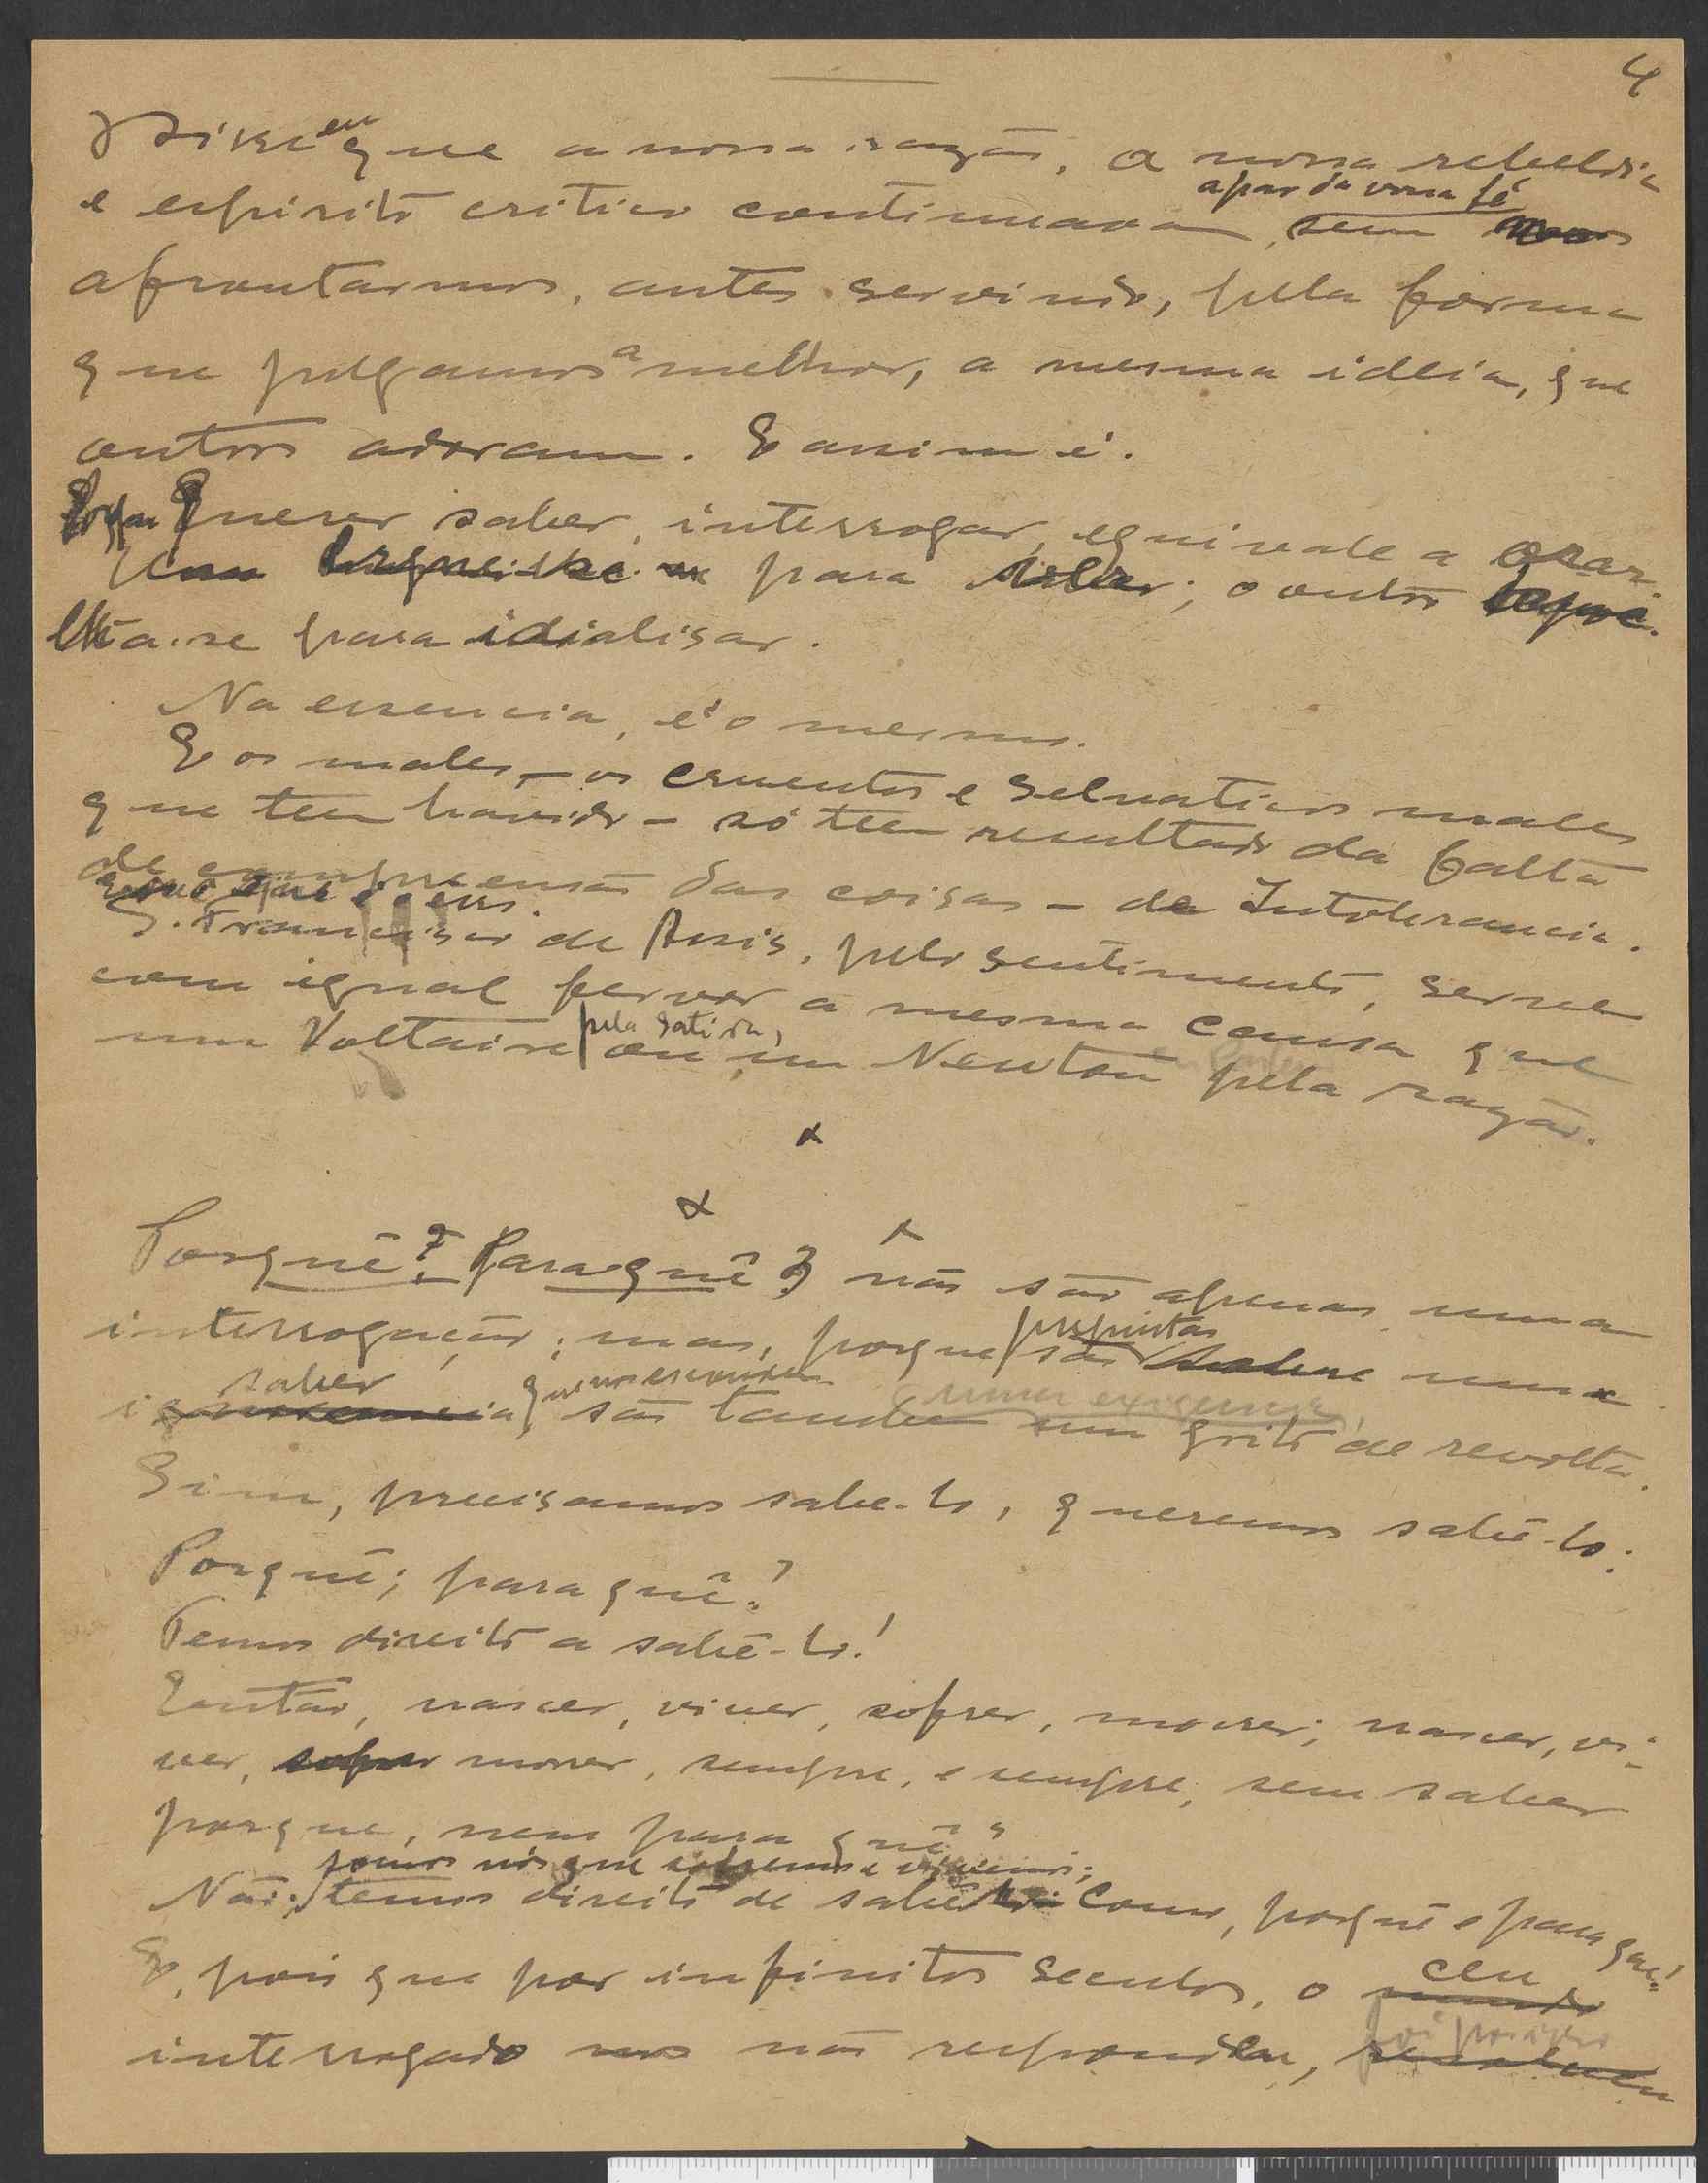 4
Disse eu que a nossa razão, a nossa rebeldia
a par da vossa fé
e espirito critico continuavam, sem
afrontarmos, antes servindo, pela forma
que julgamos a melhor, a mesma idéia, que
outros adoram. E assim é.
Querer saber, interrogar, equivale a orar.
Um para saber; o outro
-se para idialisar.
Na essencia, é o mesmo.
E os males – os cruentos e selvaticos males
que teem havido – só teem resultado da falta
de compreensão das coisas – da Intolerancia.
S. Francisco de Assis, pelo sentimento, serve
com igual fervor a mesma causa que
um Voltaire pela satira, ou um Newton pela razão.
x
x x
Porquê? Para quê? não são apenas uma
interrogação; mas, porque perguntas são uma
saber que nos escondem
ignorancia, são tambem uma exigencia, um grito de revolta.
Sim, precisamos sabe-lo, queremos sabê-lo:
Porquê; para quê?
Temos direito a sabê-lo!
Então, nascer, viver, sofrer, morrer; nascer, vi-
ver, sofrer morrer, sempre, e sempre, sem saber
porque, nem para quê?
somos nós que sofremos e vivemos;
Não: temos direito de sabê-lo: Como, porquê e para quê!
E, pois que por infinitos seculos, o ceu
mundo
interrogado nos não respondeu, foi preciso